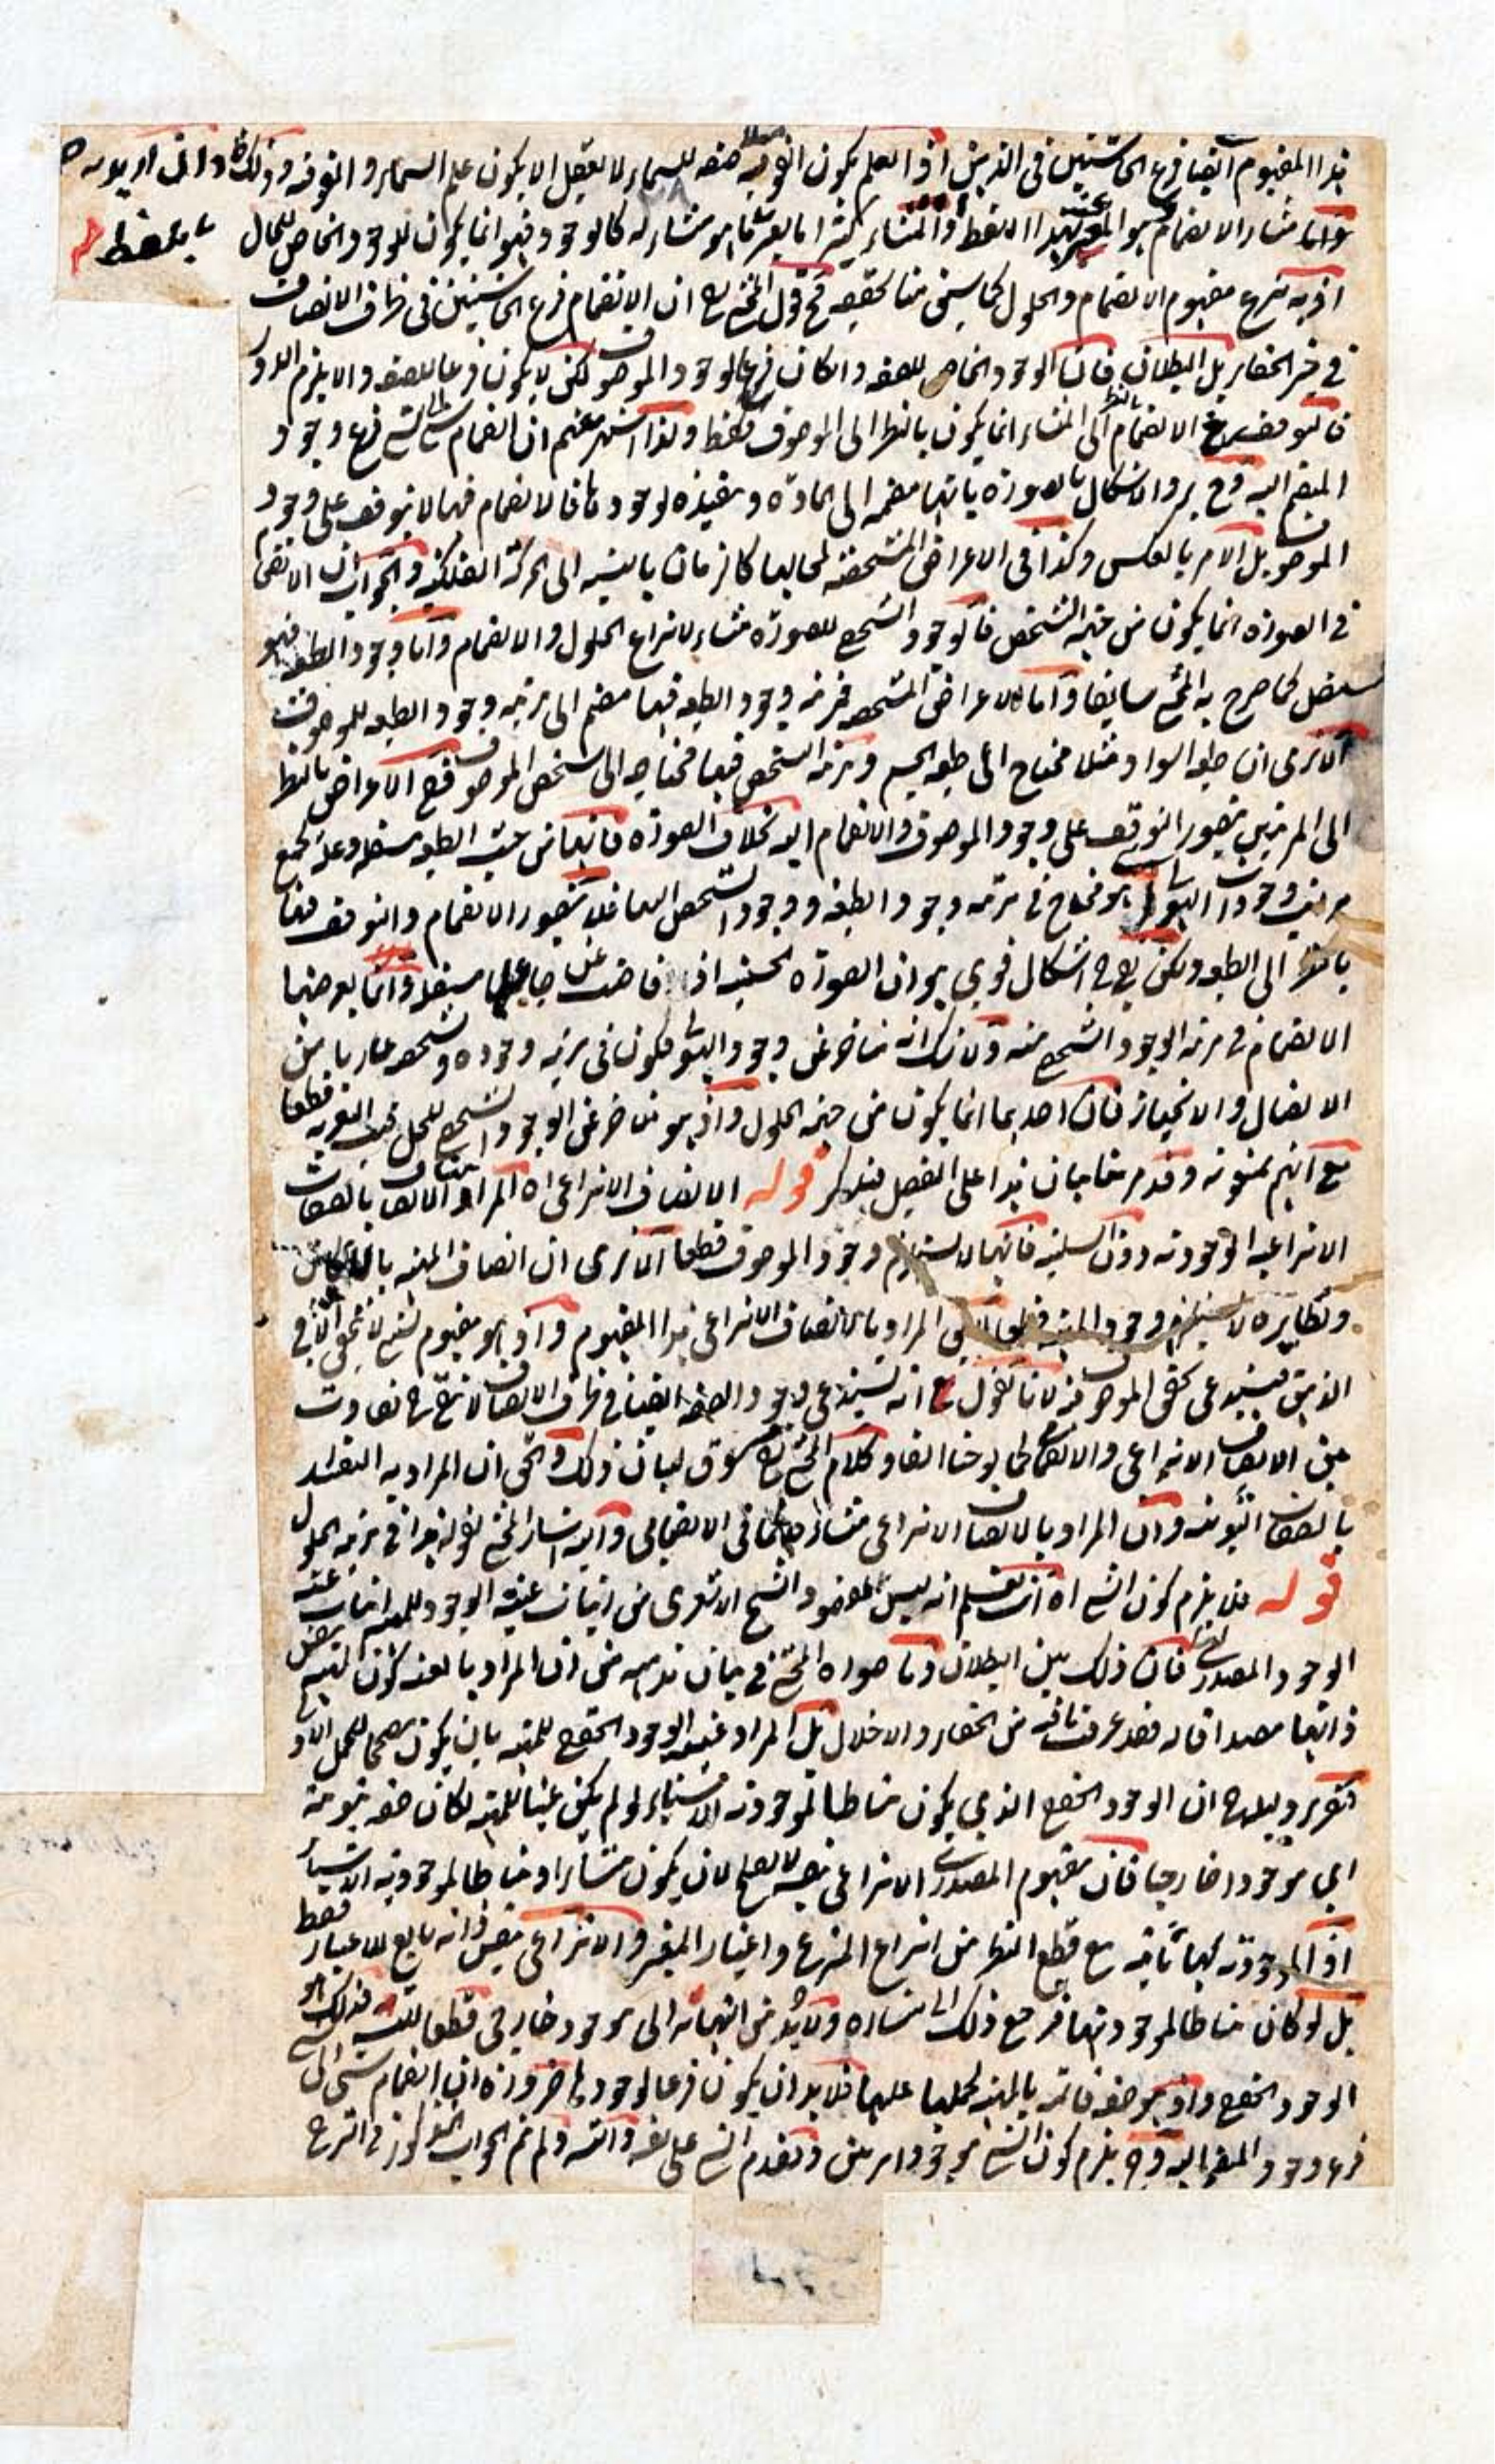 هذا المفهوم ايضا فرع الحاشيتين في الذهن اذ العلم بكون الفوقية صفة للسماء لا يعقل الا بكون علم السماء والفوقية وذلك
واما منشاء الانضمام هو المعبر بهذا اللفظ والمنشاء كثيرا ما يعبر بما هو منشاء له كالوجود فهو انما يكون للوجود الخاص للحال
اذ به ينتزع مفهوم الانضمام والحلول كما سيجئ منا تحقيقه فح قول المحشي ان الانضمام فرع الحاشيتين في ظرف الاتصاف
في حيز الخفاء بل البطلان فان الوجود الخاص للصفة وان كان فرعا لوجود الموصوف لكن لا يكون فرعا للصفة والا يلزم الدور
فالتوقف الانضمام الى المنشاء انما يكون بالنظر الى الموصوف فقط ولذا اشتهر منهم ان انضمام شئ الى شئ فرع وجود
المنضم اليه وح يرد الاشكال بالصورة بانها منضمة الى المادة ومفيدة لوجودها فالانضمام فيها لا يتوقف على وجود
الموصوف بل الامر بالعكس وكذا في الاعراض المشخصة لمحالها كالزمان بالنسبة الى الحركة الفلكية والجواب ان الانضمام
في الصورة انما يكون من جهة التشخص فالوجود الشخصي للصورة منشاء لانتزاع الحلول والانضمام واما وجود الطبيعة فهو
مستقل كما صرح به المحشي سابقا واما الاعراض المشخصة فمرتبة وجود الطبيعة فيها منضم الى مرتبة وجود الطبيعة للموصوف
الا ترى ان طبيعة السواد مثلا محتاج الى طبيعة الجسم ومرتبة الشخص فيها محتاجة الى شخص الموصوف ففي الاعراض بالنظر
الى المرتبتين يتصور التوقف على وجود الموصوف والانضمام اليه بخلاف الصورة فانها من حيث الطبيعة مستقلة وعلة لجميع
مراتب وجودات الهيولى هو محتاج في مرتبة وجود الطبيعة ووجود الشخص اليها فلا يتصور الانضمام والتوقف فيها
بالنظر الى الطبيعة ولكن يبقى ح اشكال قوي هو ان الصورة الجسمية اذا فاضت عن جاعلها مستقلة وانما يعرضها
الانضمام في مرتبة الوجود الشخصي منه ولا شك انه متأخر عن وجود الهيولى فيكون في مرتبة وجوده وتشخصه عاريا من
الاتصال والانحياز فان احدهما انما يكون من جهة الحلول واذ هو متأخر عن الوجود الشخصي للمحل فيثبت التعرية قطعا
مع انهم يمنعونه وقد مر منا بيان هذا على التفصيل فتذكر قوله الاتصاف الانتزاعي اه المراد الاتصاف بالصفات
الانتزاعية الوجودية دون السلبية فانها لا تستلزم وجود الموصوف قطعا الا ترى ان اتصاف المهية بالامكان
ونظايره لا يستلزم وجود المهية قطعا المراد بالاتصاف الانتزاعي هذا المفهوم واذ هو مفهوم نسبي لا يتحقق الا في
الذهن فيستدعي تحقق الموصوف فيه لانا نقول مع انه يستدعي وجود الصفة ايضا في ظرف الاتصاف لا يبقى ح تفاوت
بين الاتصاف الانتزاعي والانضمامي كما لوحنا انفا وكلام المحشي مسوق لبيان ذلك والحق ان المراد به التقييد
بالصفات الثبوتية وان المراد بالاتصاف الانتزاعي منشاؤه كما في الانضمامي واليه اشار المحشي بقوله هذا في مرتبة الحلول
قوله فلا يلزم كون الشئ اه انت تعلم انه ليس مقصود الشيخ الاشعري من اثبات عينية الوجود للمهية اثبات عينية
الوجود المصدري فان ذلك بين البطلان وما صوره المحشي في بيان مذهبه من ان المراد بالعينية كون المهية بنفس
ذاتها مصداقا له فقد عرفت ما فيه من الخفاء والاخلال بل المراد عينية الوجود الحقيقي للمهية بان يكون مصححا للحمل
تقرير دليله ح ان الوجود الحقيقي الذي يكون مناطا لموجودية الاشياء لو لم يكن عينا للمهية لكان صفة ثبوتية
اي موجودا خارجيا فان مفهوم المصدري الانتزاعي بنفسه لا يصلح لان يكون منشاء او مناطا لموجودية الاشياء
اذ الموجودية لها ثابتة مع قطع النظر من انتزاع المنتزع واعتبار المعتبر والانتزاعي بنفس ذاته تابع للاعتبار فقط
بل لو كان مناطا لموجوديتها فمرجع ذلك الى منشائه ولا بد من انتهائه الى موجود خارجي قطعا للتسلسل فذلك هو
الوجود الحقيقي واذ هو صفة قائمة بالمهية لحملها عليها فلا بد ان يكون فرعا لوجودها ضرورة ان انضمام شئ الى شئ
فرع وجود المنضم اليه وح يلزم كون الشئ موجودا مرتين وتقدم الشئ على نفسه وانه لم يتم الجواب المذكور في الشرح